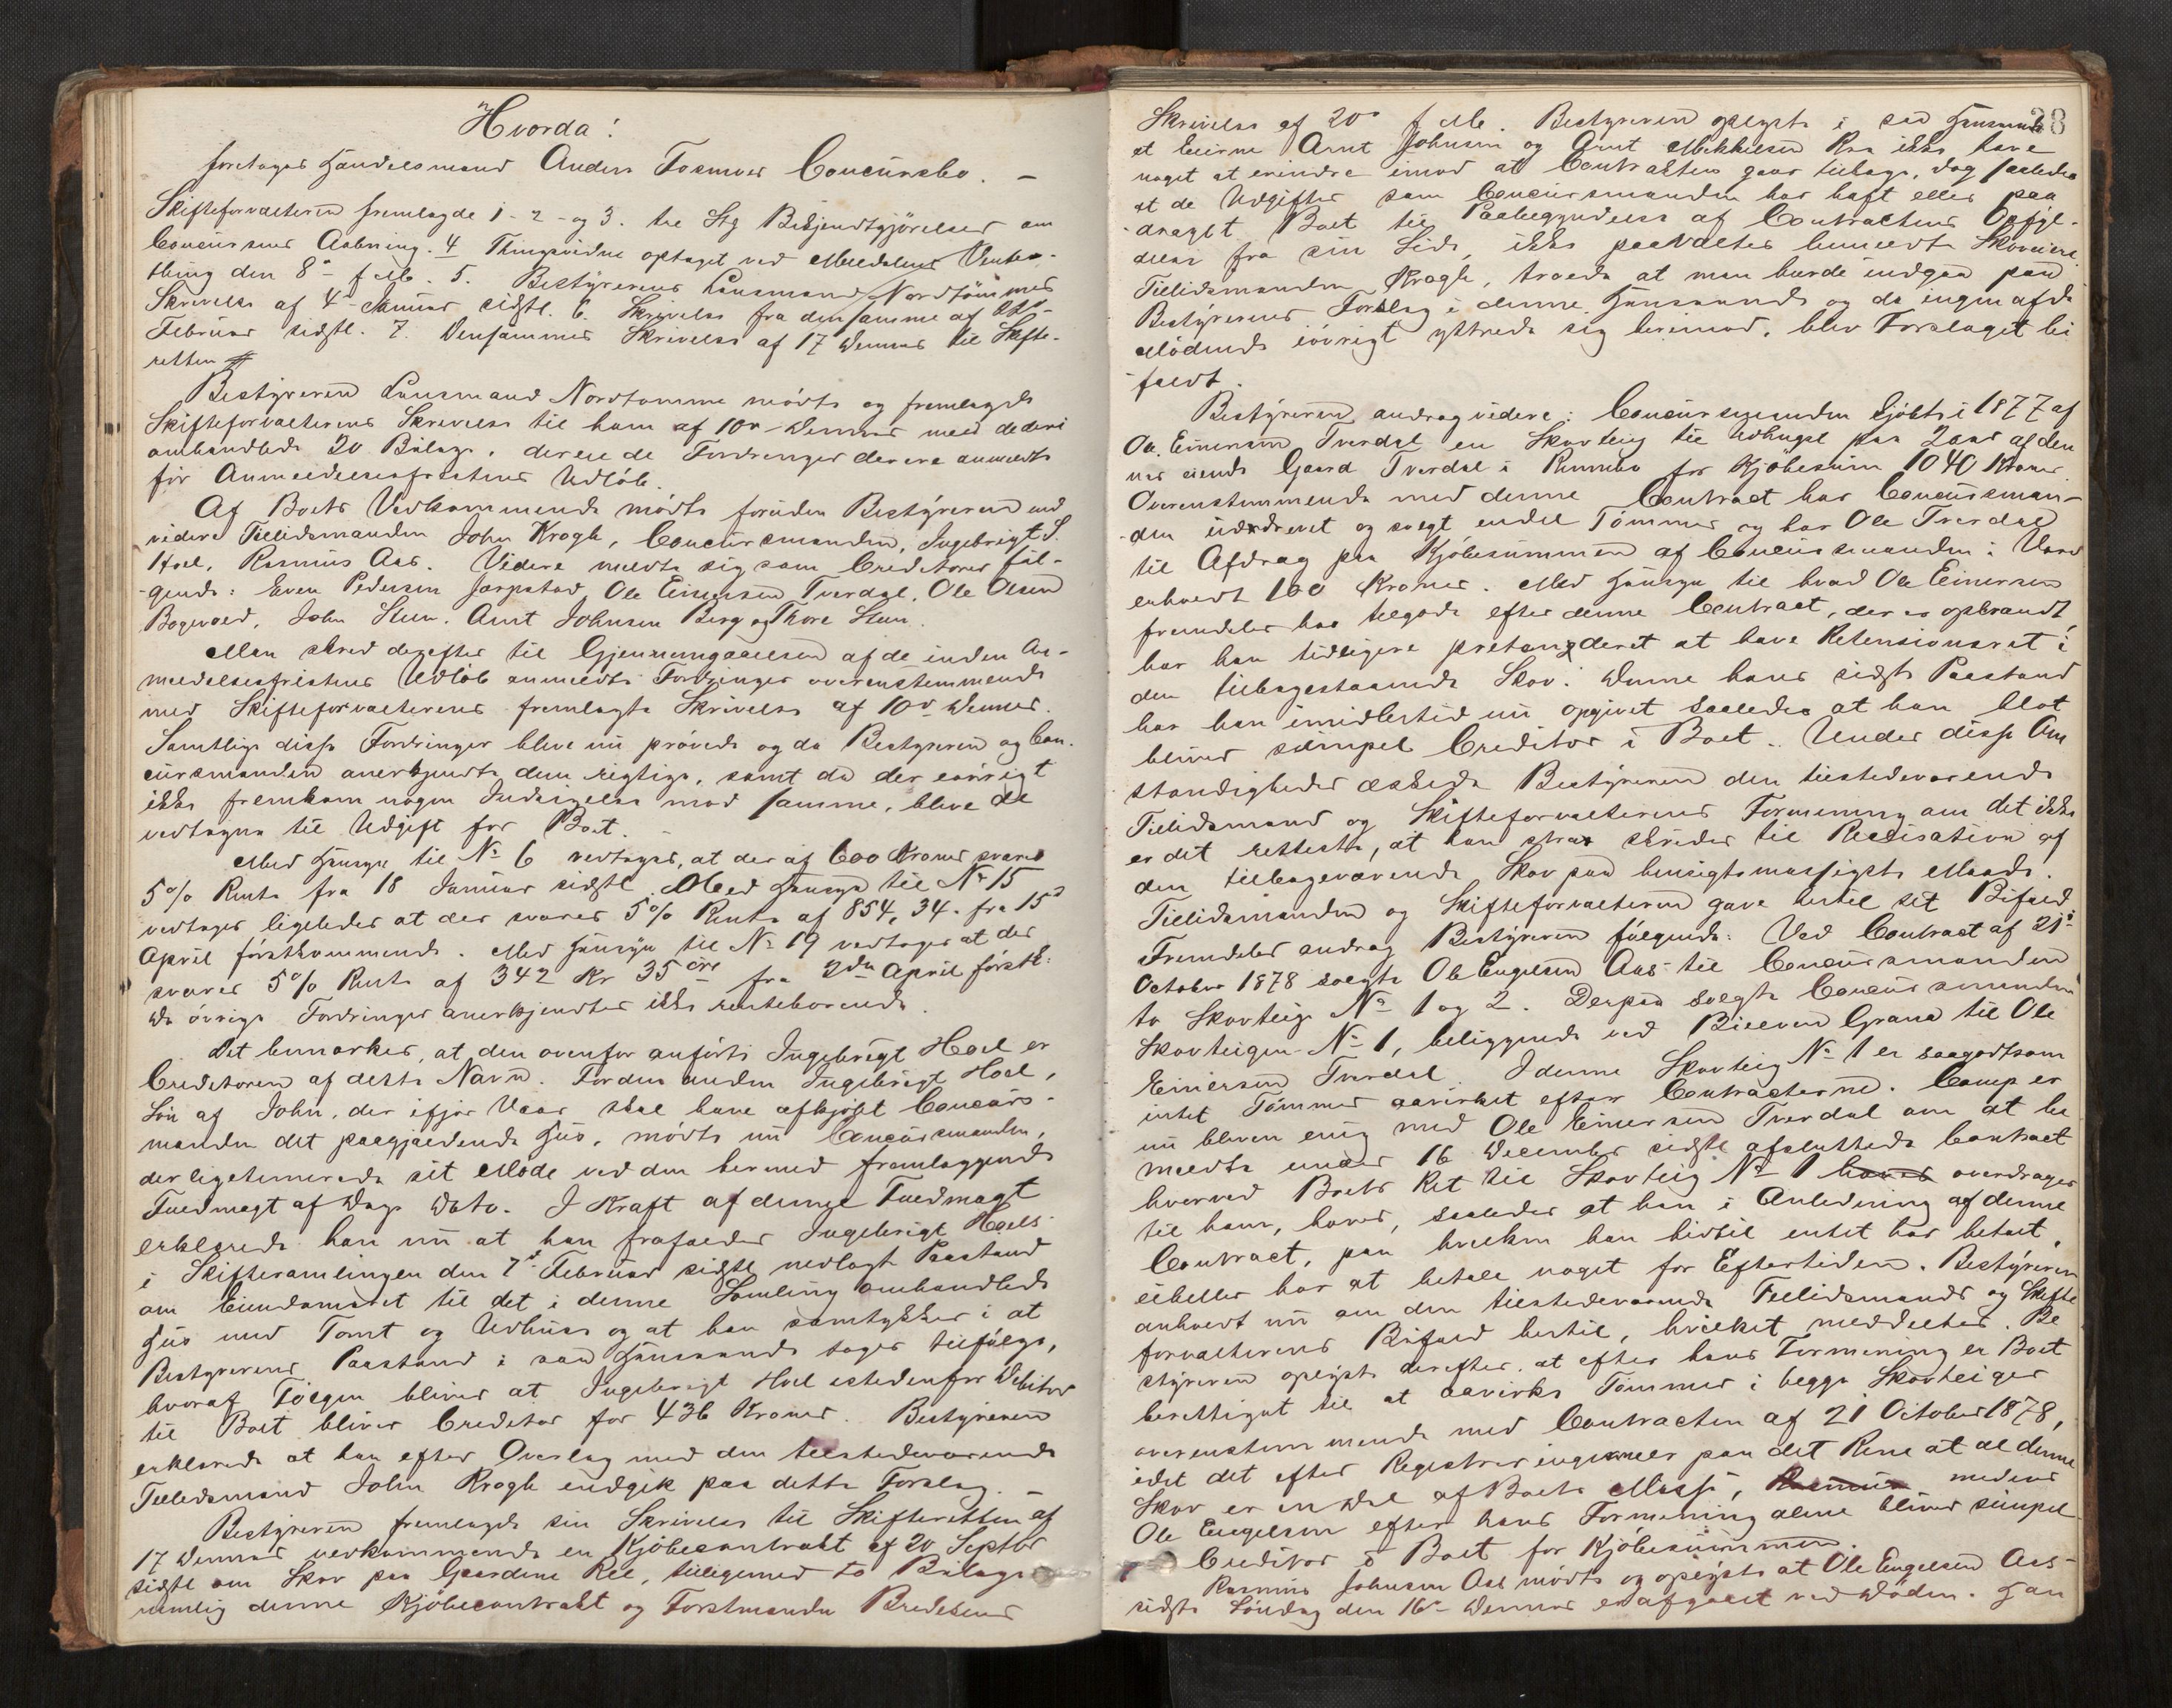 Hvorda!
foretages Handelsmand Anders Fosmoes Concursbo. —
Skifteforvalteren fremlagde 1 - 2 - og 3. tre Stg Bekjendtgjörelser om
Concursens Aabning. 4 Thingsvidne optaget ved Meldalens Vinter-
thing den 8de f. M. 5. Bestyrerens Lensmand Nordtömmes
Skrivelse af 4de Januar sidstl. 6. Skrivelse fra densamme af
Februar sidstl. 7. Densammes Skrivelse af 17 dennes til Skifte-
retten
Bestyreren Lensmand Nordtömme mödte og fremlagde
Skifteforvalterens Skrivelse til ham af 10de dennes med de deri
omhandlede 20 Bilage, derere de Fordringer der ere anmeldte
för Anmeldelsesfristens Udlöb.
Af Boets Vedkommende mödte foruden Bestyreren end
videre Tillidsmanden John Krogh, Concursmanden, Ingebrigt S.
Hoel, Rasmus Aas. Videre meldte sig som Creditorer föl-
gende: Even Pedersen Jerpstad, Ole Einersen Tverdal, Ole Olsen
Bogevold, John Steen. Arnt Johnsen Berg og Thore Steen.
Man skred derefter til Gjennemgaaelsen af de inden An-
meldelsesfristens Udlöb anmeldte Fordringer overenstemmende
med Skifteforvalterens fremlagte Skrivelse af 10de dennes.
Samtlige disse Fordringer bleve nu prövede og da Bestyreren og Con-
cursmanden anerkjendte dem rigtige, samt da der eiövrigt
ikke fremkom nogen Indsigelse mod samme, bleve de
vedtagne til Udgift for Boet. —
Med Hensyn til No 6 vedtages, at der af 600 Kroner svares
5% Rente fra 18 Januar sidstl. Med Hensyn til No 15
vedtages ligeledes at der svares 5% Rente af 854, 34. fra 15de
April förstkommende. Med Hensyn til No 19 vedtages at der
svares 5% Rente af 342 Kr 35 öre fra 2den April förstk.
De övrige Fordringer anerkjendtes ikke rentebærende.
Det bemærkes, at den ovenfor anförte Ingebrigt Hoel er
Creditoren af dette Navn. For den anden Ingebrigt Hoel,
Sön af John, der ifjor Vaar skal have afkjöbt Concurs-
manden det paagjældende Hus, mödte nu Concursmanden,
der legitimerede sit Möde ved den hermed fremlæggende
Fuldmagt af Dags Dato. I Kraft af denne Fuldmagt
erklærede han nu at han frafalder Ingebrigt Hoels
i Skiftesamlingen den 7de Februar sidstl. nedlagte Paastand
om Eiendomsret til det i denne Samling omhandlede
Hus med Tomt og Udhuse og at han samtykker i at
Bestyrerens Paastand i saa Henseende tages tilfölge,
hvoraf Fölgen bliver at Ingebrigt Hoel istedenfor Debitor
til Boet bliver Creditor for 436 Kroner. Bestyreren
erklærede at han efter Overlæg med den tilstedeværende
Tillidsmand John Krogh indgik paa dette Forslag. —
Bestyreren fremlagde sin Skrivelse til Skifteretten af
17 dennes vedkommende en Kjöbecontrakt af 20 Septbr
sidstl om Skov paa Gaardene Ree, tilligemed to Bilage
nemlig denne Kjöbecontrakt og Forstmanden Bredesens
38
Skrivelse af 20de f. M. Bestyreren oplyste i saa Henseende
at Eierne Arnt Johnsen og Arnt Mikkelsen Ree ikke have
noget at erindre imod at Contrakten gaar tilbage, dog saaledes
at de Udgifter som Concursmanden har haft eller paa-
draget Boet til Paabegyndelse af Contractens Opfyl-
delse fra sin Side, ikke paavæltes bemeldte Skoveiere.
Tillidsmanden Krogh, troede at man burde indgaa paa
Bestyrerens Forslag i denne Henseende og da ingen af de
Mödende iövrigt yttrede sig herimod, blev Forslaget bi-
faldt.
Bestyreren androg videre: Concursmanden kjöbte i 1877 af
Ole Einersen Tverdal en Skovteig til Udhugst paa 2 aar af den
nes eiende Gaard Tverdal i Rennebo for Kjöbesum 1040 Kroner.
Overenstemmende med denne Contract har Concursman-
den uddrevet og solgt endel Tömmer og har Ole Tverdal
til Afdrag paa Kjöbesummen af Concursmanden i Vaar
erholdt 160 Kroner. Med Hensyn til hvad Ole Einersen
fremdeles har tilgode efter denne Contract, der er oplæst,
har han tidligere prætenderet at have Retensionsret i
den tilbagestaaende Skov. Denne hans sidste Paastand
har han imidlertid nu opgivet saaledes at han blot
bliver simpel Creditor i Boet. Under disse Om
stændigheder æskede Bestyreren den tilstedeværende
Tillidsmand og Skifteforvalterens Formening om det ikke
er det retteste, at han strax skrider til Realisation af
den tilbageværende Skov paa hensigtsmæssigste Maade.
Tillidsmanden og Skifteforvalteren gave hertil sit Bifald.
Fremdeles androg Bestyreren fölgende: Ved Contract af 21de
October 1878 solgte Ole Engelsen Aas til Concursmanden
to Skovteige No 1 og 2. Derpaa solgte Concursmanden
Skovteigen No 1, beliggende ved Bielven Grana til Ole
Einersen Tverdal. I denne Skovteig No 1 er saagodtsom
intet Tömmer aavirket efter Contracterne. Comp er
nu bleven enig med Ole Einersen Tverdal om at be
meldte under 16 December sidstl afsluttede Contract
hvorved Boets Ret til Skovteig No 1 overdrages
til ham, hæves, saaledes at han i Anledning af denne
Contract, paa hvilken han hidtil intet har betalt,
eiheller har at betale noget for Eftertiden. Bestyreren
anholdt nu om den tilstedeværende Tillidsmands og Skifte
forvalterens Bifald hertil, hvilket meddeltes. Be
styreren oplyste derefter, at efter hans Formening er Boet
berettiget til at aavirke Tömmer i begge Skovteiger
overenstemmende med Contracten af 21 October 1878,
idet det efter Registreringen er paa det Rene at al denne
Skov er en Del af Boets Masse, medens
Ole Engelsen efter hans Formening alene bliver simpel
Creditor i Boet for Kjöbesummen.
Rasmus Johnsen Aas mödte og oplyste at Ole Engelsen Aas
sidste Söndag den 16de dennes er afgaaet ved Döden. Han